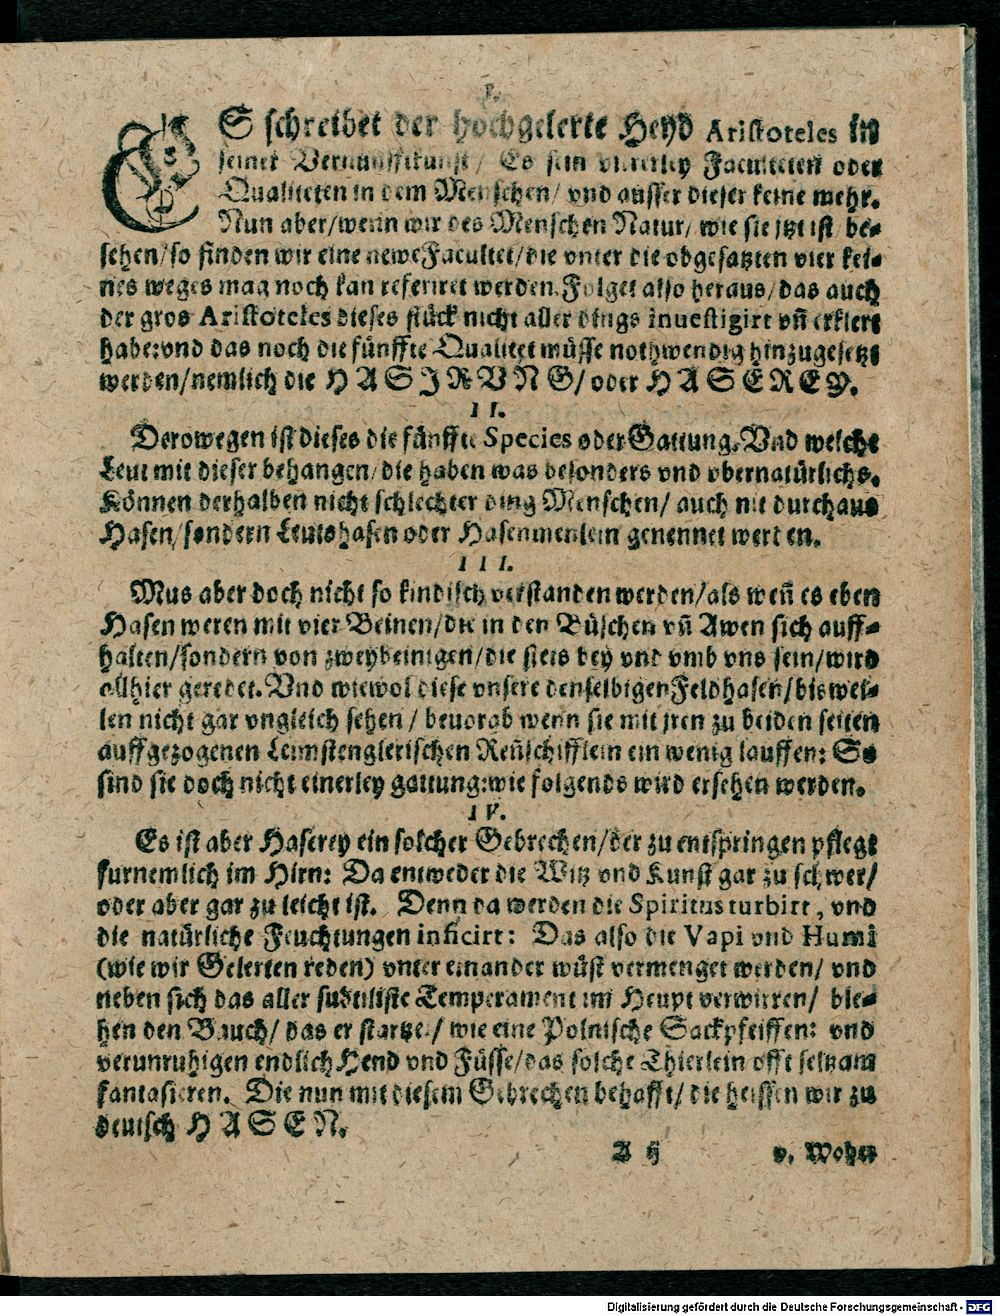 I.
ES schreibet der hochgelerte Heyd Aristoteles in
seiner Vernunfftkunst / Es sein viererley Faculteten oder
Qualiteten in dem Menschen / vnd ausser dieser keine mehr.
Nun aber / wenn wir des Menschen Natur / wie sie jtzt ist / be-
sehen / so finden wir eine newe Facultet / die vnter die obgesatzten vier kei-
nes weges mag noch kan referiret werden. Folget also heraus / das auch
der gros Aristoteles dieses stück nicht aller dings inuestigirt vn̄ erklert
habe: vnd das noch die fünffte Qualitet müsse nothwendig hinzugesetzt
werden / nemlich die HASIRVNG / oder HASEREY.
II.
Derowegen ist dieses die fünffte Species oder Gattung. Vnd welche
Leut mit dieser behangen / die haben was besonders vnd vbernatürlichs.
Können derhalben nicht schlechter ding Menschen / auch nit durchaus
Hasen / sondern Leutshasen oder Hasenmenlein genennet werden.
III.
Mus aber doch nicht so kindisch verstanden werden / als wen̄ es eben
Hasen weren mit vier Beinen / die in den Büschen vn̄ Awen sich auff-
halten / sondern von zweybeinigen / die stets bey vnd vmb vns sein / wird
allhier geredet. Vnd wiewol diese vnsere denselbigen Feldhasen / biswei-
len nicht gar vngleich sehen / beuorab wenn sie mit jren zu beiden seiten
auffgezogenen Leimstenglerischen Ren̄schifflein ein wenig lauffen: So
sind sie doch nicht einerley gattung: wie folgends wird ersehen werden.
IV.
Es ist aber Haserey ein solcher Gebrechen / der zu entspringen pflegt
furnemlich im Hirn: Da entweder die Witz vnd Kunst gar zu schwer /
oder aber gar zu leicht ist. Denn da werden die Spiritus turbirt, vnd
die natürliche Feuchtungen inficirt: Das also die Vapi vnd Humi
(wie wir Gelerten reden) vnter einander wüst vermenget werden / vnd
neben sich das aller subtiliste Temperament im Heupt verwirren / ble-
hen den Bauch / das er startzet / wie eine Polnische Sackpfeiffen: vnd
verunruhigen endlich Hend vnd Füsse / das solche Thierlein offt seltzam
fantasieren. Die nun mit diesem Gebrechen behafft / die heissen wir zu
deutsch HASEN.
A ij v. Woher
Digitalisierung gefördert durch die Deutsche Forschungsgemeinschaft - DFG